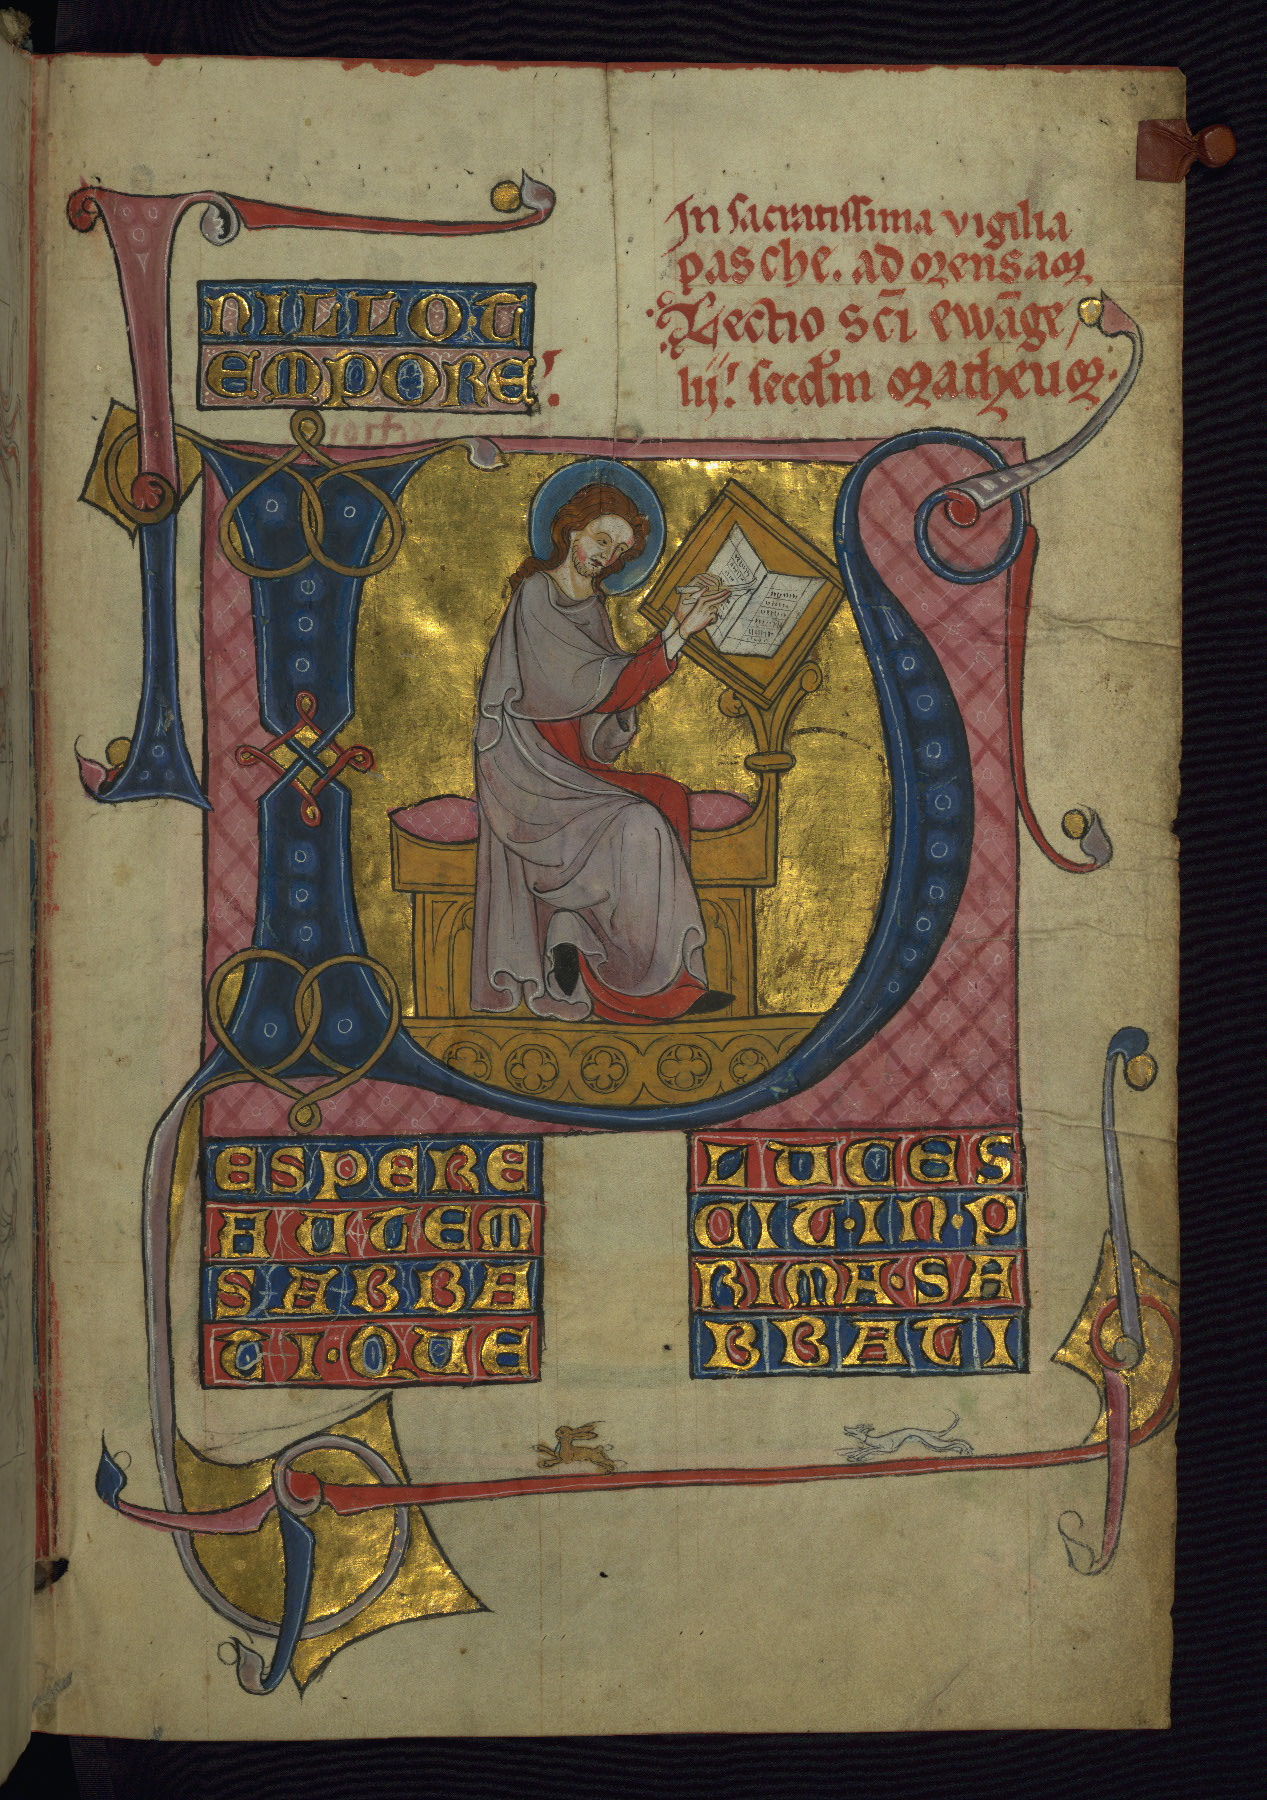 In sacratissima vigilia
pasche. ad mensam
Lectio sc̄i ewāge/
lij! secd̄m matheum.
INILLOT
EMPORE!
VESPERE
AUTEM
SABBA
TI·QUE
LUCES
CIT·IN·P
RIMA·SA
BBATI